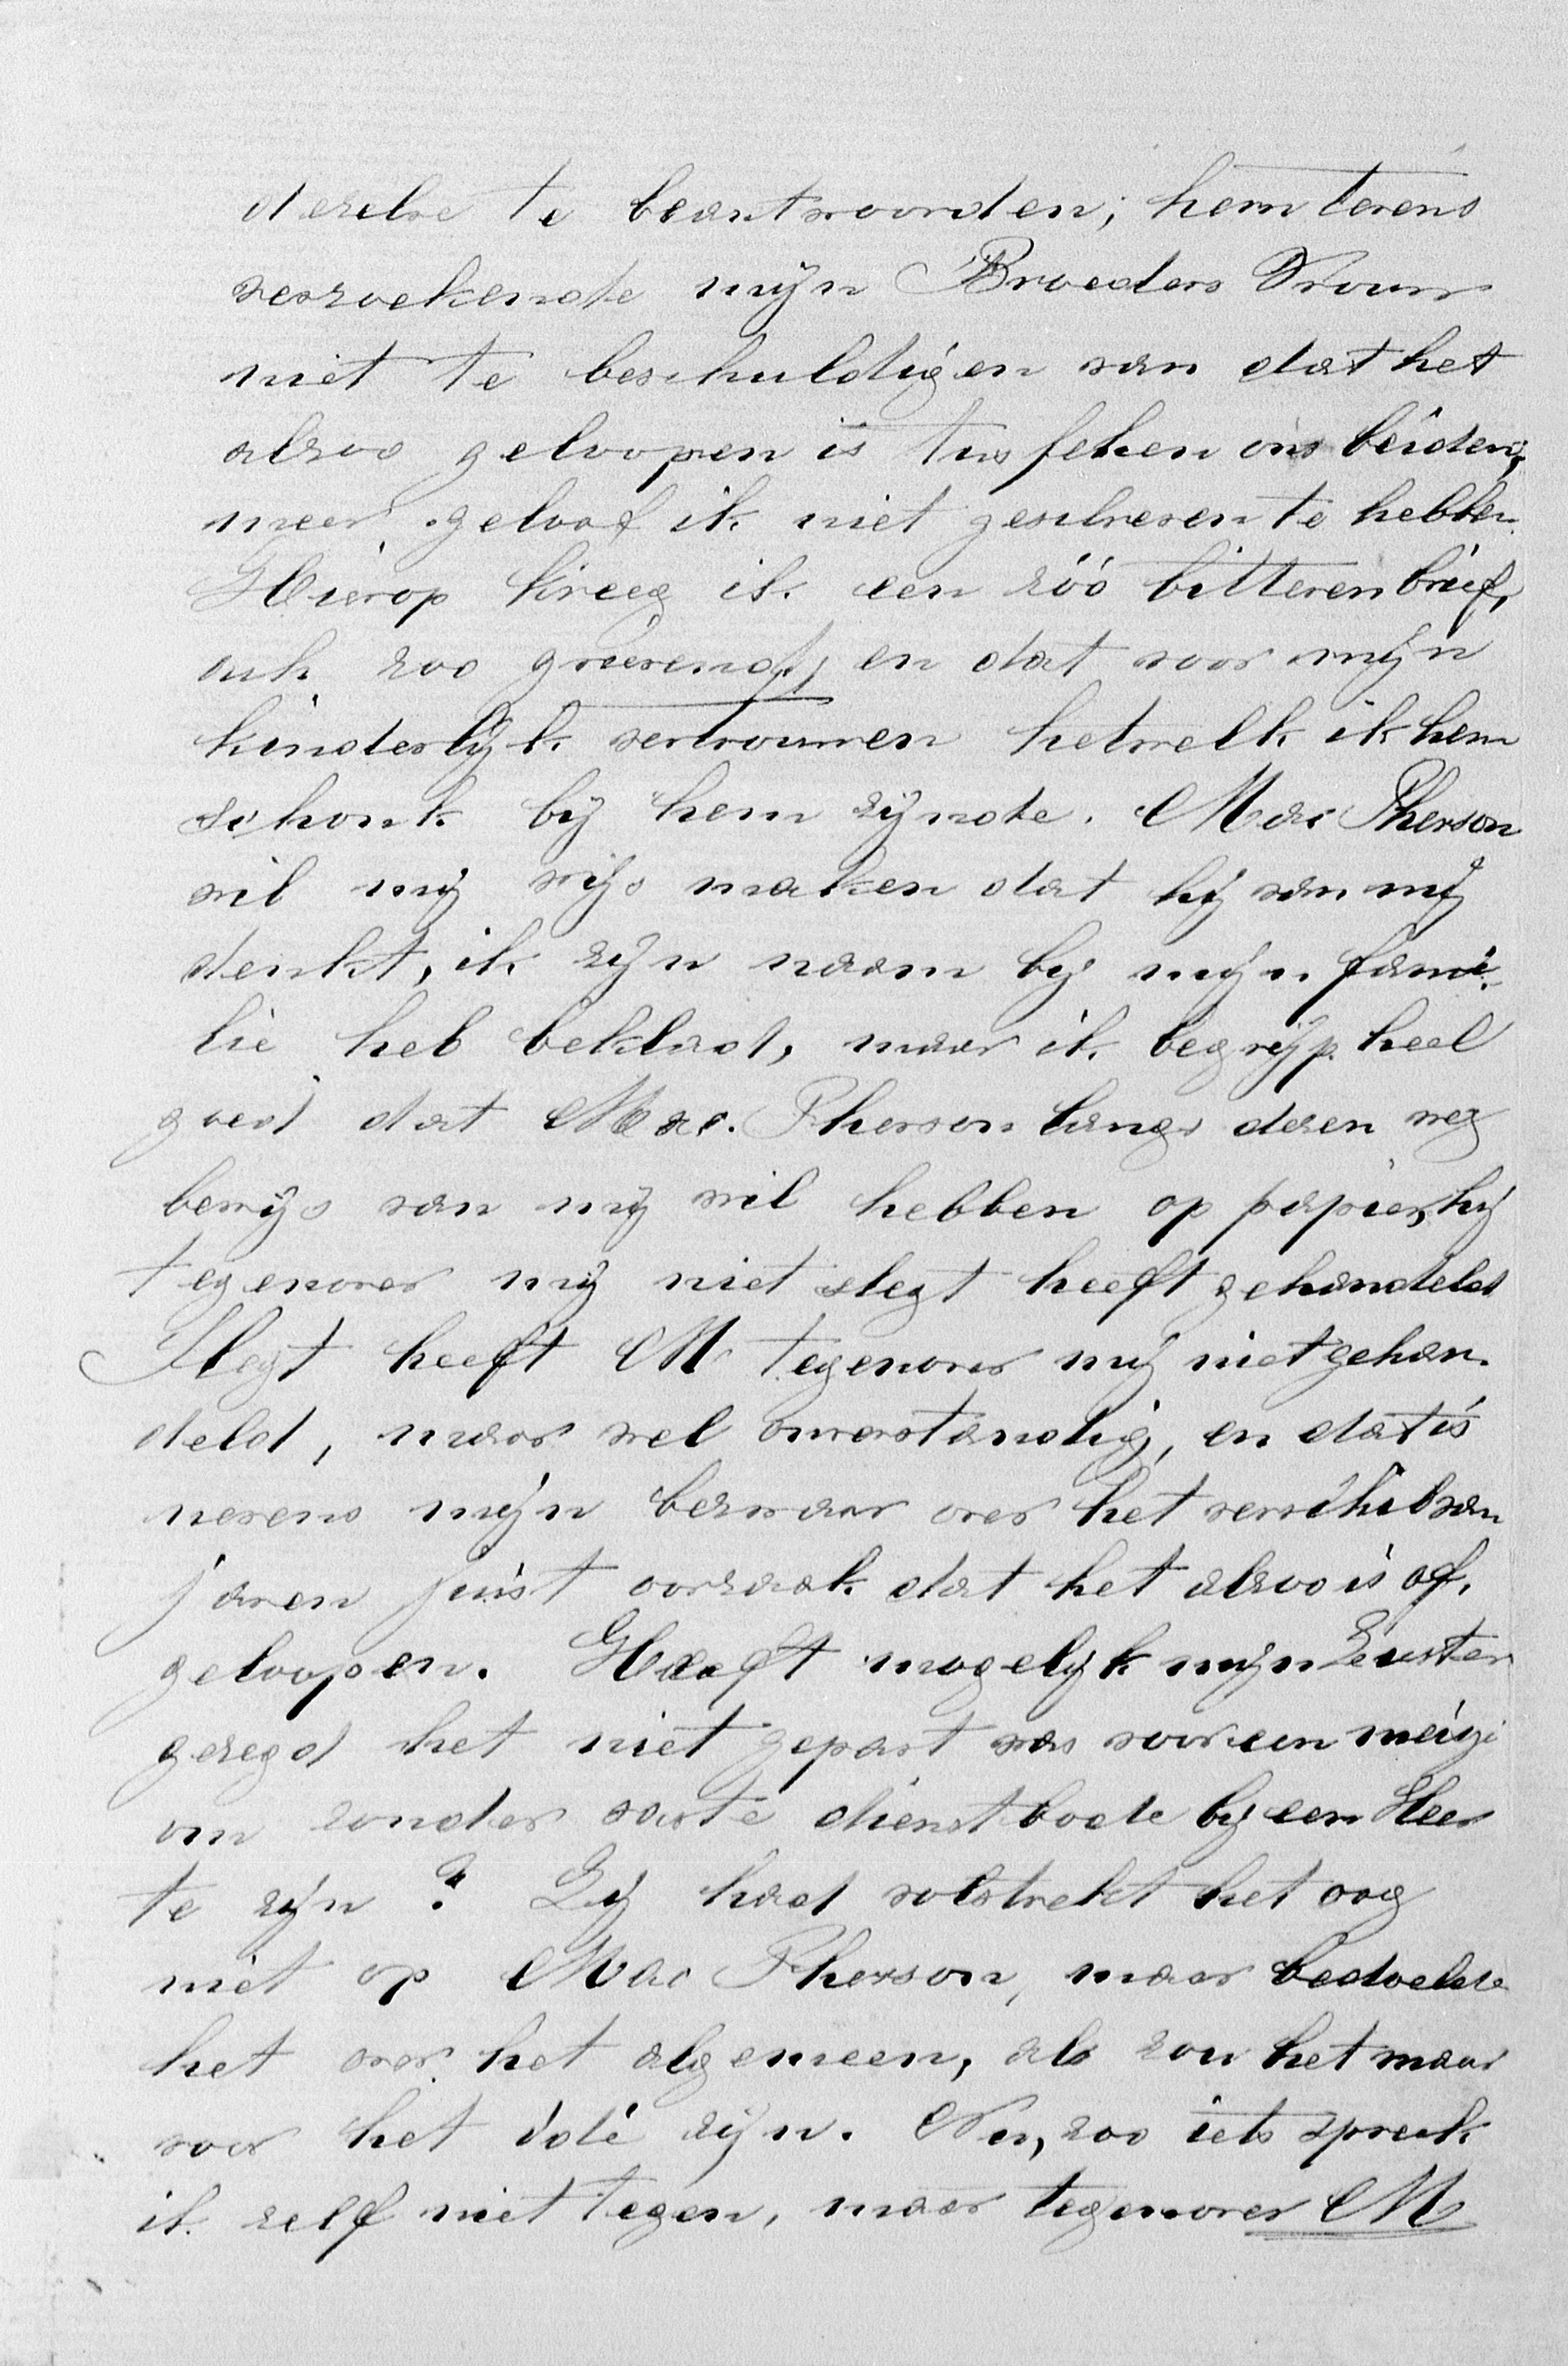 dezelve te beantwoorden; hem tevens
verzoekende mijn Broeders Vrouw
niet te beschuldigen van dat het
alzoo geloopen is tusschen ons beiden;
meer geloof ik niet geschreven te hebben.
Hierop kreeg ik een zóó bitteren brief,
ach zoo grievend, en dat voor mijn
kinderlijk vertrouwen hetwelk ik hem
schonk bij hem zijnde. Mac Pherson
wil mij wijs maken dat hij van mij
denkt, ik zijn naam bij mijn fami-
lie heb beklad, maar ik begrijp heel
goed dat Mac. Pherson langs dezen weg
bewijs van mij wil hebben op papier, hij
tegenover mij niet slegt heeft gehandeld
Slegt heeft M tegenover mij niet gehan-
deld, maar wel onverstandig, en dat is
nevens mijn bezwaar over het verschil van
jaren juist oorzaak dat het alzoo is af-
geloopen. Heeft mogelijk mijn Zuster
gezegd het niet gepast was voor een meisje
om zonder vaste dienstbode bij een Heer
te zijn? Zij had volstrekt het oog
niet op Mac Pherson, maar bedoelde
het over het algemeen, als zou het maar
voor het idée zijn. Nu, zoo iets spreek
ik zelf niet tegen, maar tegenover M